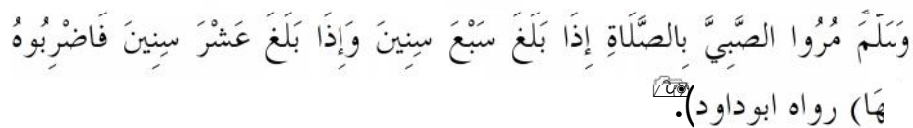 وَسَلَّمَ مُرُوا الصَّبِيَّ بِالصَّلَاةِ إِذَا بَلَغَ سَبْعَ سِنِينَ وَإِذَا بَلَغَ عَشْرَ سِنِينَ فَاضْرِبُوهُ
هَا) رواه ابوداود).